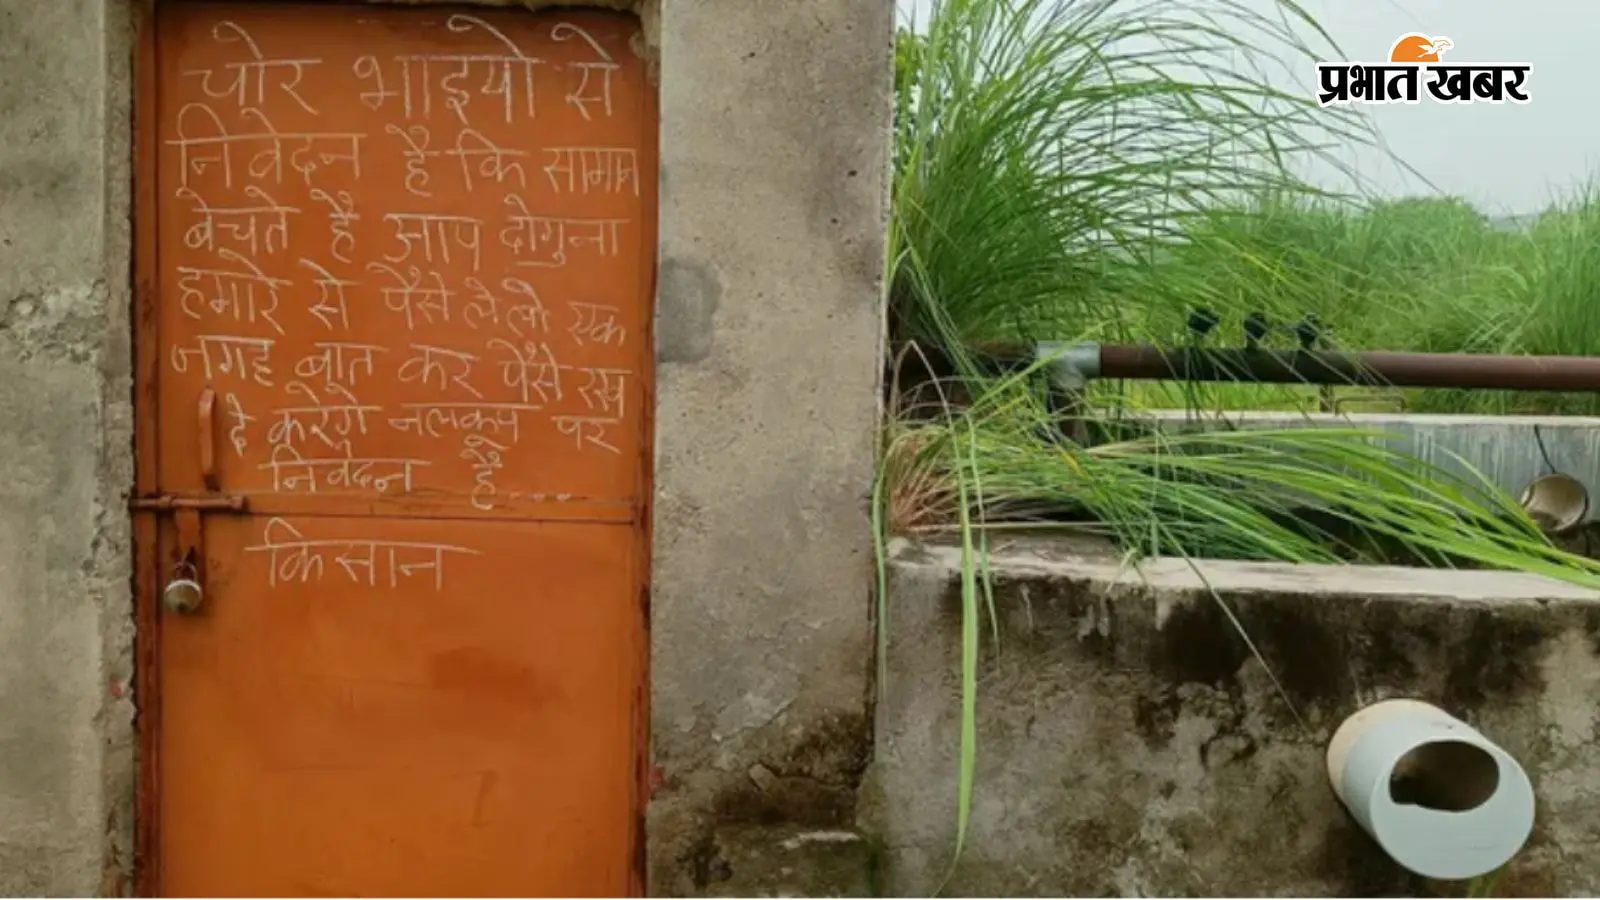 चोर भाइयो से
निवेदन है कि सामान
बेचते है आप दोगुना
हमारे से पैसे ले लो एक
जगह बात कर पैसे रख
दे करेगे नलकूप पर
निवेदन है....
किसान
प्रभात खबर